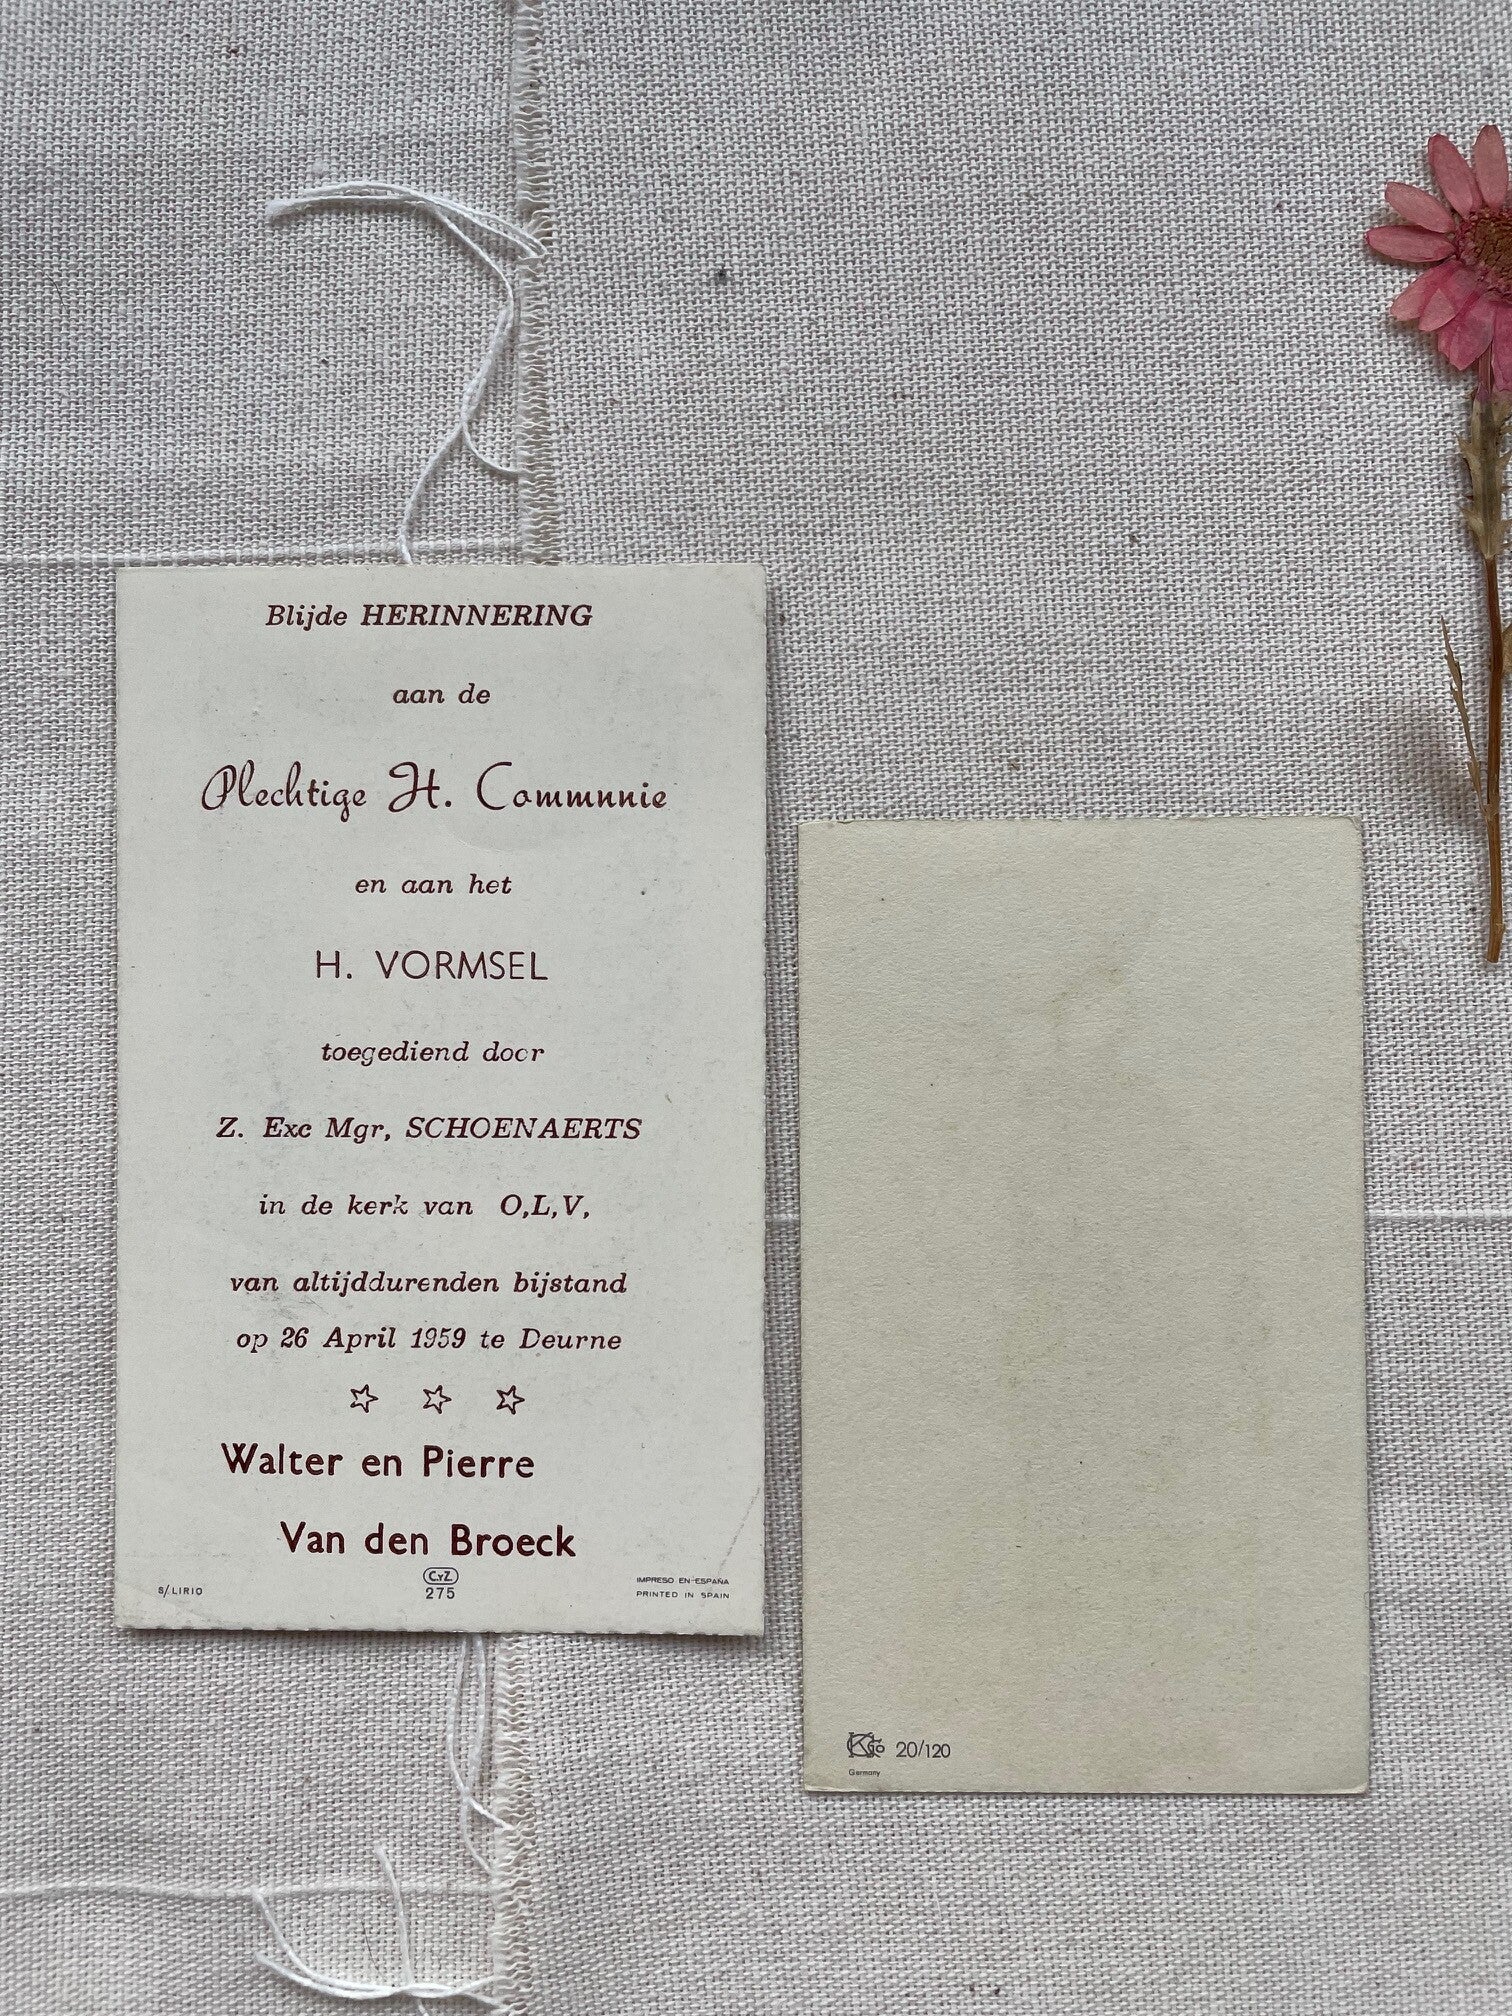 Blijde HERINNERING
aan de
Plechtige H. Communie
en aan het
H. VORMSEL
toegediend door
Z. Exc Mgr, SCHOENAERTS
in de kerk van O,L,V,
van altijddurenden bijstand
op 26 April 1959 te Deurne
Walter en Pierre
Van den Broeck
S/LIRIO
CyZ
275
IMPRESO EN ESPAÑA
PRINTED IN SPAIN
20/120
Germany